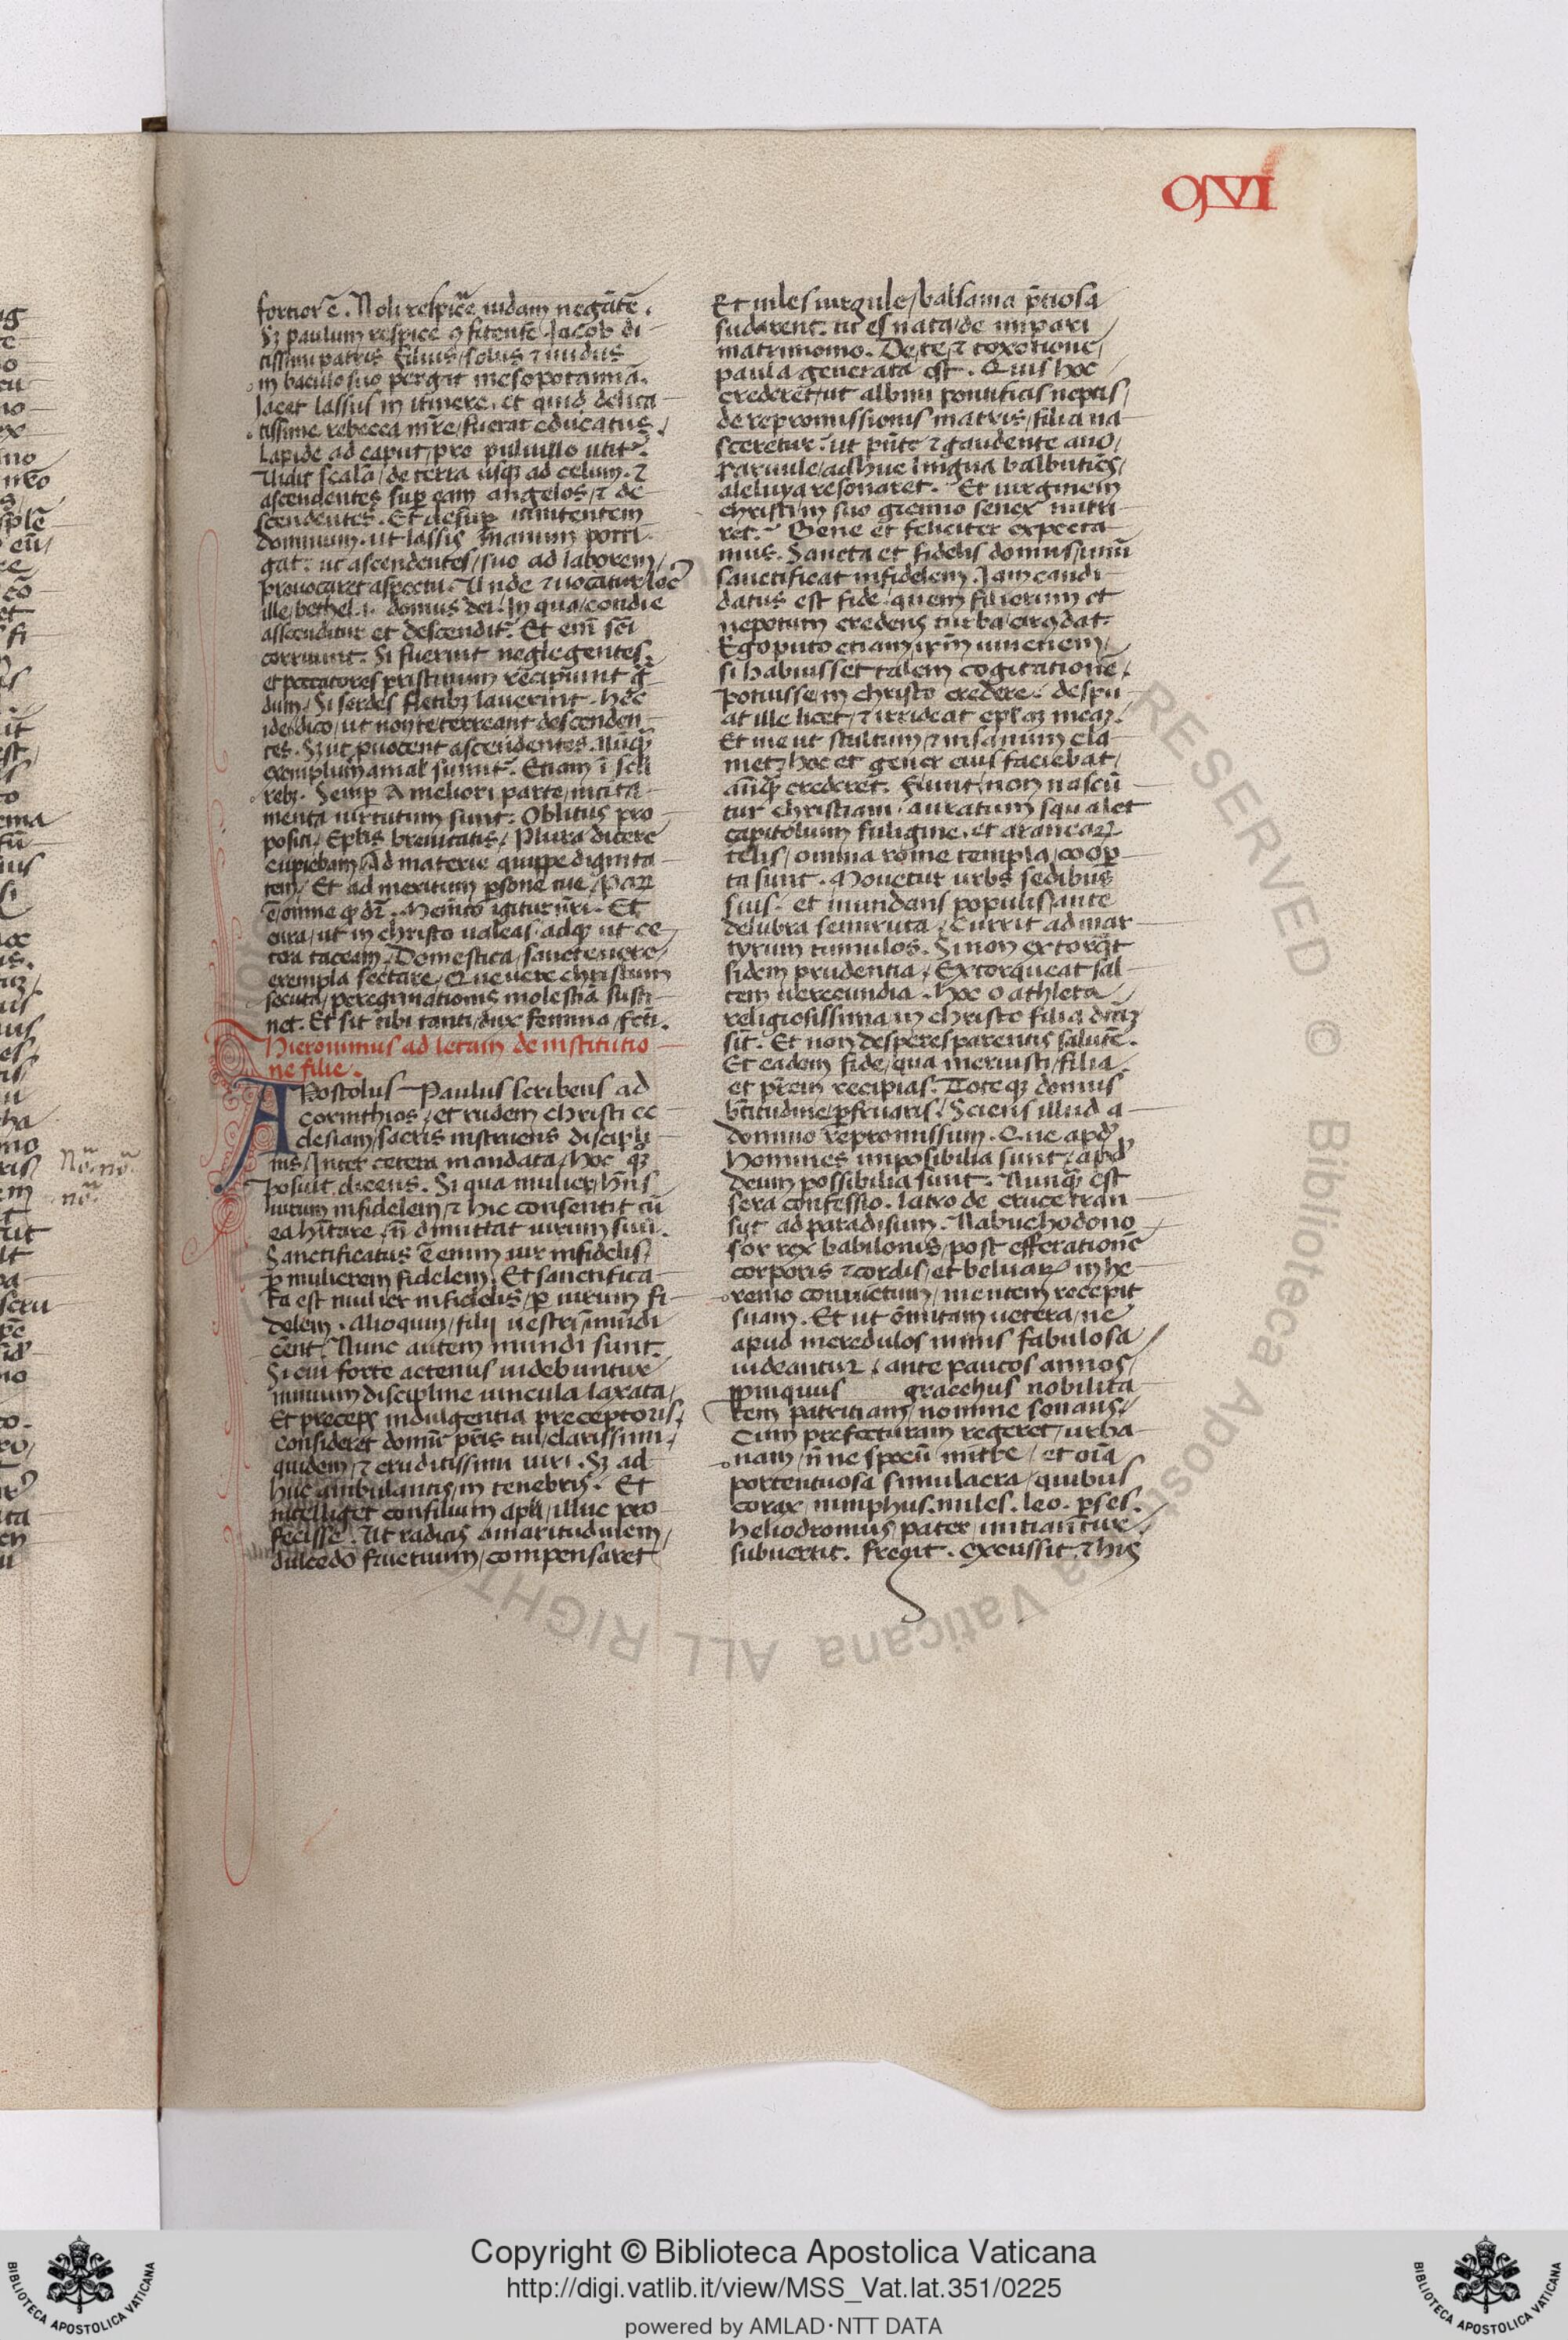 CIVI
fortiorē. Noli respicē iudam negātē.
Sꝫ paulum respice ꝯfitentē. Jacob di
tissimi patris filius/ solus ⁊ nudus
in baculo suo pergit mesopotamiā.
Jacet lassus in itinere. et qui d delica
tissime rebecca mr̄e/ fuerat educatus.
Lapide ad caput/ pro puluillo utit᷑.
Uidit scalā/ de terra usqꝫ ad celum. ⁊
ascendentes suꝑ eam angelos/ ⁊ de
scendentes. Et desuꝑ innitentem
dominum. ut lassis manum porri
gat: ut ascendentes/ suo ad laborem/
prouocaret aspectu. Unde ⁊ uocatur loc᷒
ille/ bethel .i. domus dei. In qua cotidie
ascenditur et descendit᷑. Et eni̅ sc̄i
corruunt. Si fuerint neglegentes.
et peccatores pristinum recipiunt g̃
dum/ Si sordes fletibꝫ lauerint. hec
ideo dico/ ut non te terreant descenden
tes. Sꝫ ut ꝓuocent ascendentes. Nūqꝫ
exemplum a mal̕ sumit᷑. Etiam ī scl̄i
rebꝫ. Semꝑ a meliori parte/ incita
menta uirtutum sunt. Oblitus pro
positi/ Epl̄is breuitatis/ Plura dicere
cupiebam/ Ad materie quippe dignita
tem/ Et ad meritum ꝑsone tue/ Paꝝ
ē omne ꝙ dr̄. Mem̄to igitur nr̄i. Et
cura/ ut in christo ualeas. adqꝫ ut ce
tera taceam/ Domestica/ sancte uere/
exempla sectare/ Que uere christum
secuta/ peregrinationis molestiā susti
net. Et sit tibi tanti/ dux femina/ fc̄ti.
Hieronimus ad letam de institutio
ne filie.
APostolus Paulus scribens ad
corinthios/ et rudem christi ec
clesiam/ sacris instruens discipli
nis/ Inter cetera mandata/ hoc qꝫ
posuit dicens. Si qua mulier/ hn̄s
uirum infidelem/ ⁊ hic consentit cū
ea hītare/ n̄ dimittat uirum suū.
Sanctificatus ē enim uir infidelis/
ꝑ mulierem fidelem. Et sanctifica
ta est mulier infidelis/ ꝑ uirum fi
delem. alioquin/ filij uestri īmūdi
eēnt. Nunc autem mundi sunt.
Si cui forte actenus uidebuntur
nimium discipline uincula laxata/
Et preceps indulgentia preceptoris/
Consideret domū pr̄is tui/ clarissimi/
quidem/ ⁊ eruditissimi uiri. Sꝫ ad
huc ambulantis/ in tenebris. Et
intelliget consilium apl̄i/ illuc pro
fecisse. Ut radicis amaritudinem/
dulcedo fructuum/ compensaret
Et uiles uirgule/ balsama p̄tiosa
sudarent. tu es nata/ de impari
matrimonio. De te/ ⁊ toxotione/
paula generata est. Quis hoc
crederet/ ut albini pontificis neptis/
de repromissionis matris/ filia na
sceretur. ut p̄nte ⁊ gaudente auo/
Paruule/ adhuc lingua balbuties/
aleluya resonaret. Et uirginem
christi/ in suo gremio senex nutri
ret. Bene et feliciter expecta
mus. Sancta et fidelis domus/ unū
sanctificat infidelem. Jam candi
datus est fide. quem filiorum et
nepotum credens turba/ circūdat.
Ego puto etiam ip̄m iunctiem/
si habuisset talem cogitationē.
Potuisse in christo credere. despu
at ille licet/ ⁊ irrideat epl̄aꝫ meaꝫ.
Et me ut stultum/ ⁊ insanum cla
met/ hoc et gener eius faciebat/
an̄qꝫ crederet. Fiunt/ non nascū
tur christiani. auratum squalet
capitolium fuligine. et aranearꝝ
telis/ omnia rome templa/ cooꝑ
ta sunt. Mouetur urbs sedibus
suis. et inundans populis/ ante
delubra semiruta/ Currit ad mar
tyrum tumulos. Si non extorqt̄
fidem prudentia/ Extorqueat sal
tem uerecundia. hoc o athleta/
religiosissima in christo filia dictꝫ
sit. Et non desperes parentis salutē.
Et eadem fide/ qua meruisti/ filia
et pr̄em recipias. Toteqꝫ domus
bt̄itudine/ ꝑfruaris/ Sciens illud a
domino repromissum. Que apd̕
homines imposibilia sunt/ apd̕
deum possibilia sunt. Nunqꝫ est
sera confessio. latro de cruce tran
sijt ad paradisum. Nabuchodono
sor rex babilonis/ post efferationē
corporis ⁊ cordis/ et beluaꝝ in he
remo conuictum/ mentem recepit
suam. Et ut omittam uetera/ ne
apud incredulos nimis fabulosa
uideantur/ ante paucos annos/
ꝓpinquus gracchus nobilita
tem patritiam/ nomine sonans/
Cum prefecturam regeret/ urba
nam/ n̄ ne specū mitre/ et oīa
portentuosa simulacra/ quibus
corax/ nimphus. miles. leo. ꝑses.
heliodromus/ pater/ initiantur/
subuertit. fregit. excussit. ⁊ his
Copyright © Biblioteca Apostolica Vaticana
http://digi.vatlib.it/view/MSS_Vat.lat.351/0225
powered by AMLAD·NTT DATA